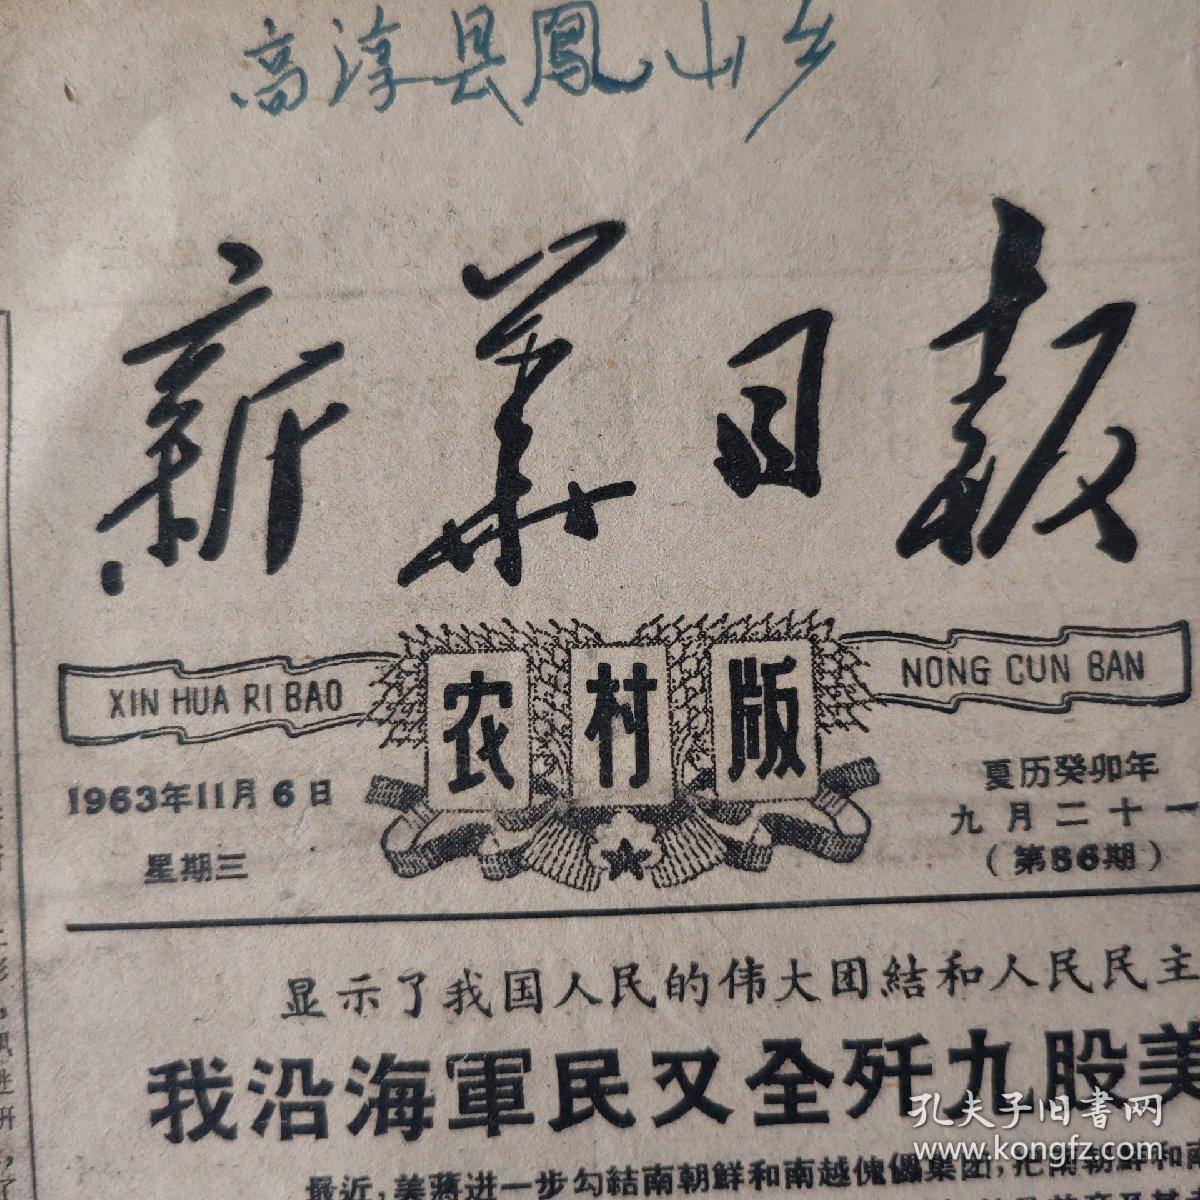 高淳县鳳山乡
新华日报
XIN HUA RI BAO
农村版
NONG CUN BAN
1963年11月6日
星期三
夏历癸卯年
九月二十一
(第86期)
显示了我国人民的伟大团結和人民民主
我沿海軍民又全歼九股美
最近,美蔣进一步勾結南朝鮮和南越傀儡集团,把南朝鮮和
孔夫子旧書网
www.kongfz.com